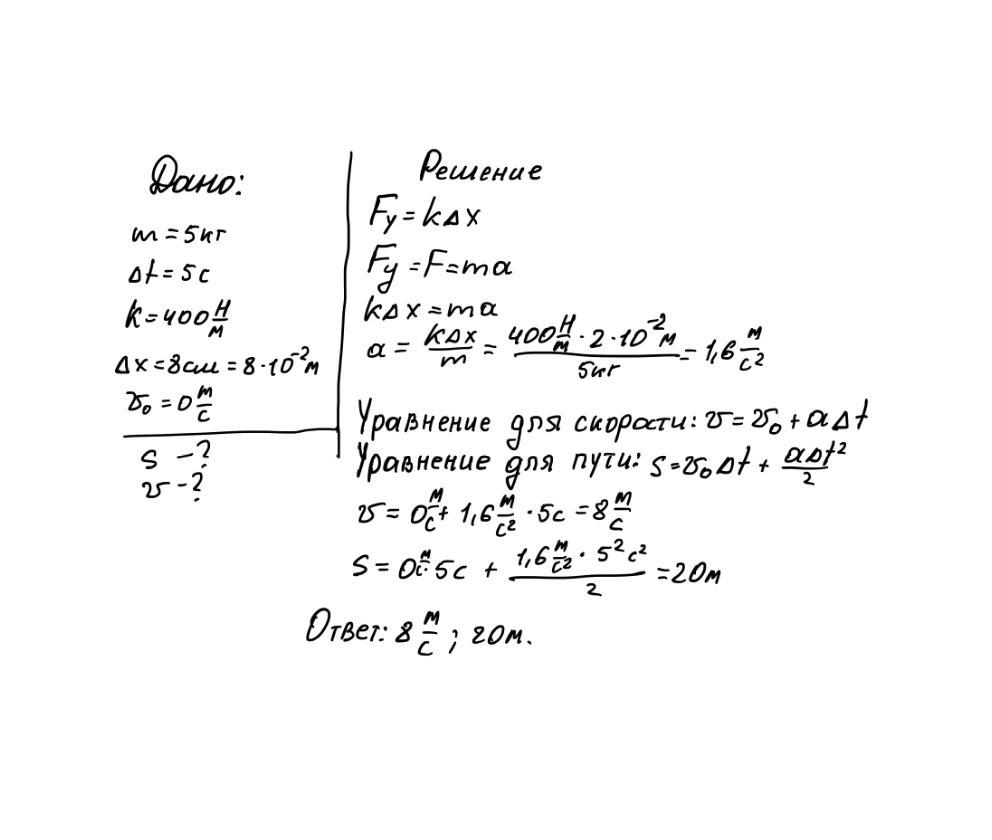 Дано:
m = 5кг
Δt = 5с
k = 400 Н/м
Δx = 8см = 8·10⁻²м
v₀ = 0 м/с
S – ?
v – ?
Решение
Fу = kΔx
Fу = F = ma
kΔx = ma
a = kΔx/m = 400 Н/м · 2 · 10⁻²м / 5кг = 1,6 м/с²
Уравнение для скорости: v = v₀ + aΔt
Уравнение для пути: S = v₀Δt + aΔt²/2
v = 0 м/с + 1,6 м/с² · 5с = 8 м/с
S = 0 м/с · 5с + 1,6 м/с² · 5²с² / 2 = 20м
Ответ: 8 м/с ; 20м.